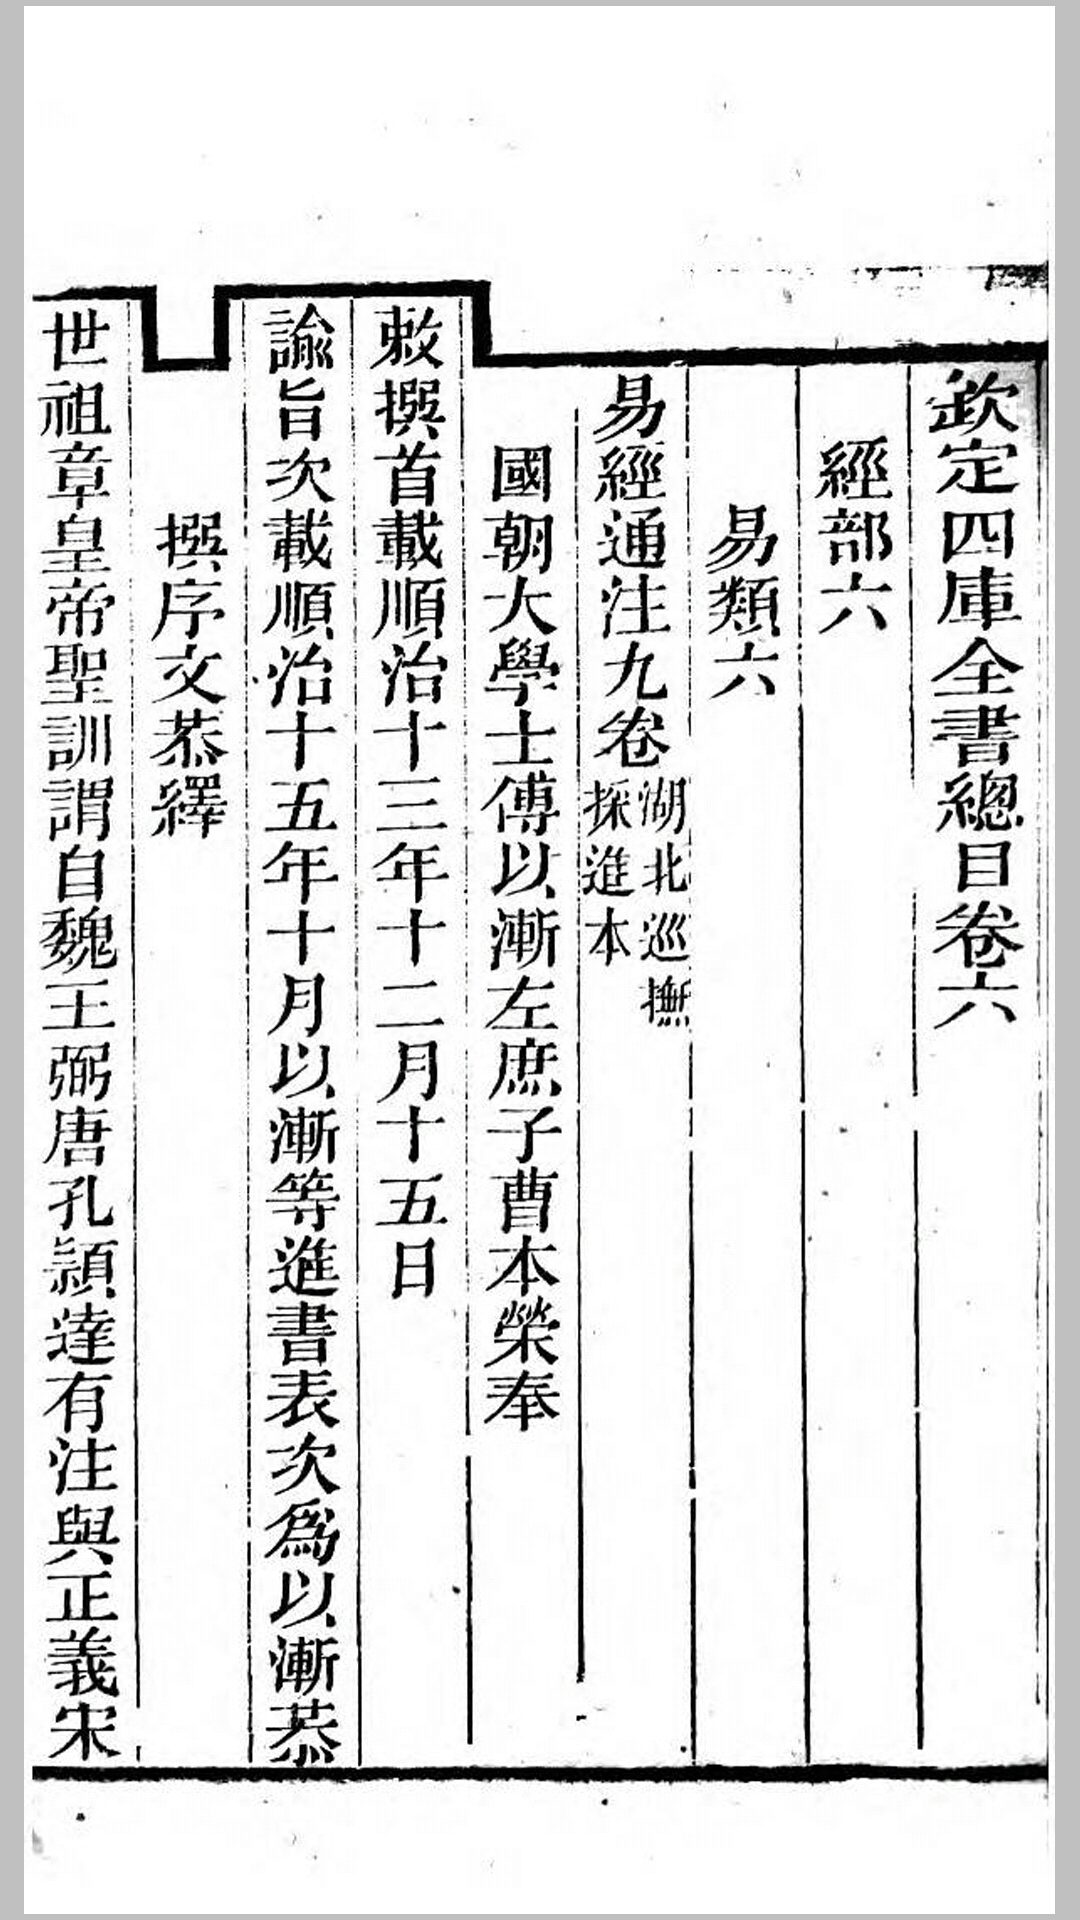 欽定四庫全書總目卷六
經部六
易類六
易經通注九卷湖北巡撫採進本
國朝大學士傅以漸左庶子曹本榮奉
敕撰首載順治十三年十二月十五日
諭旨次載順治十五年十月以漸等進書表次爲以漸恭
撰序文恭繹
世祖章皇帝聖訓謂自魏王弼唐孔頴達有注與正義宋